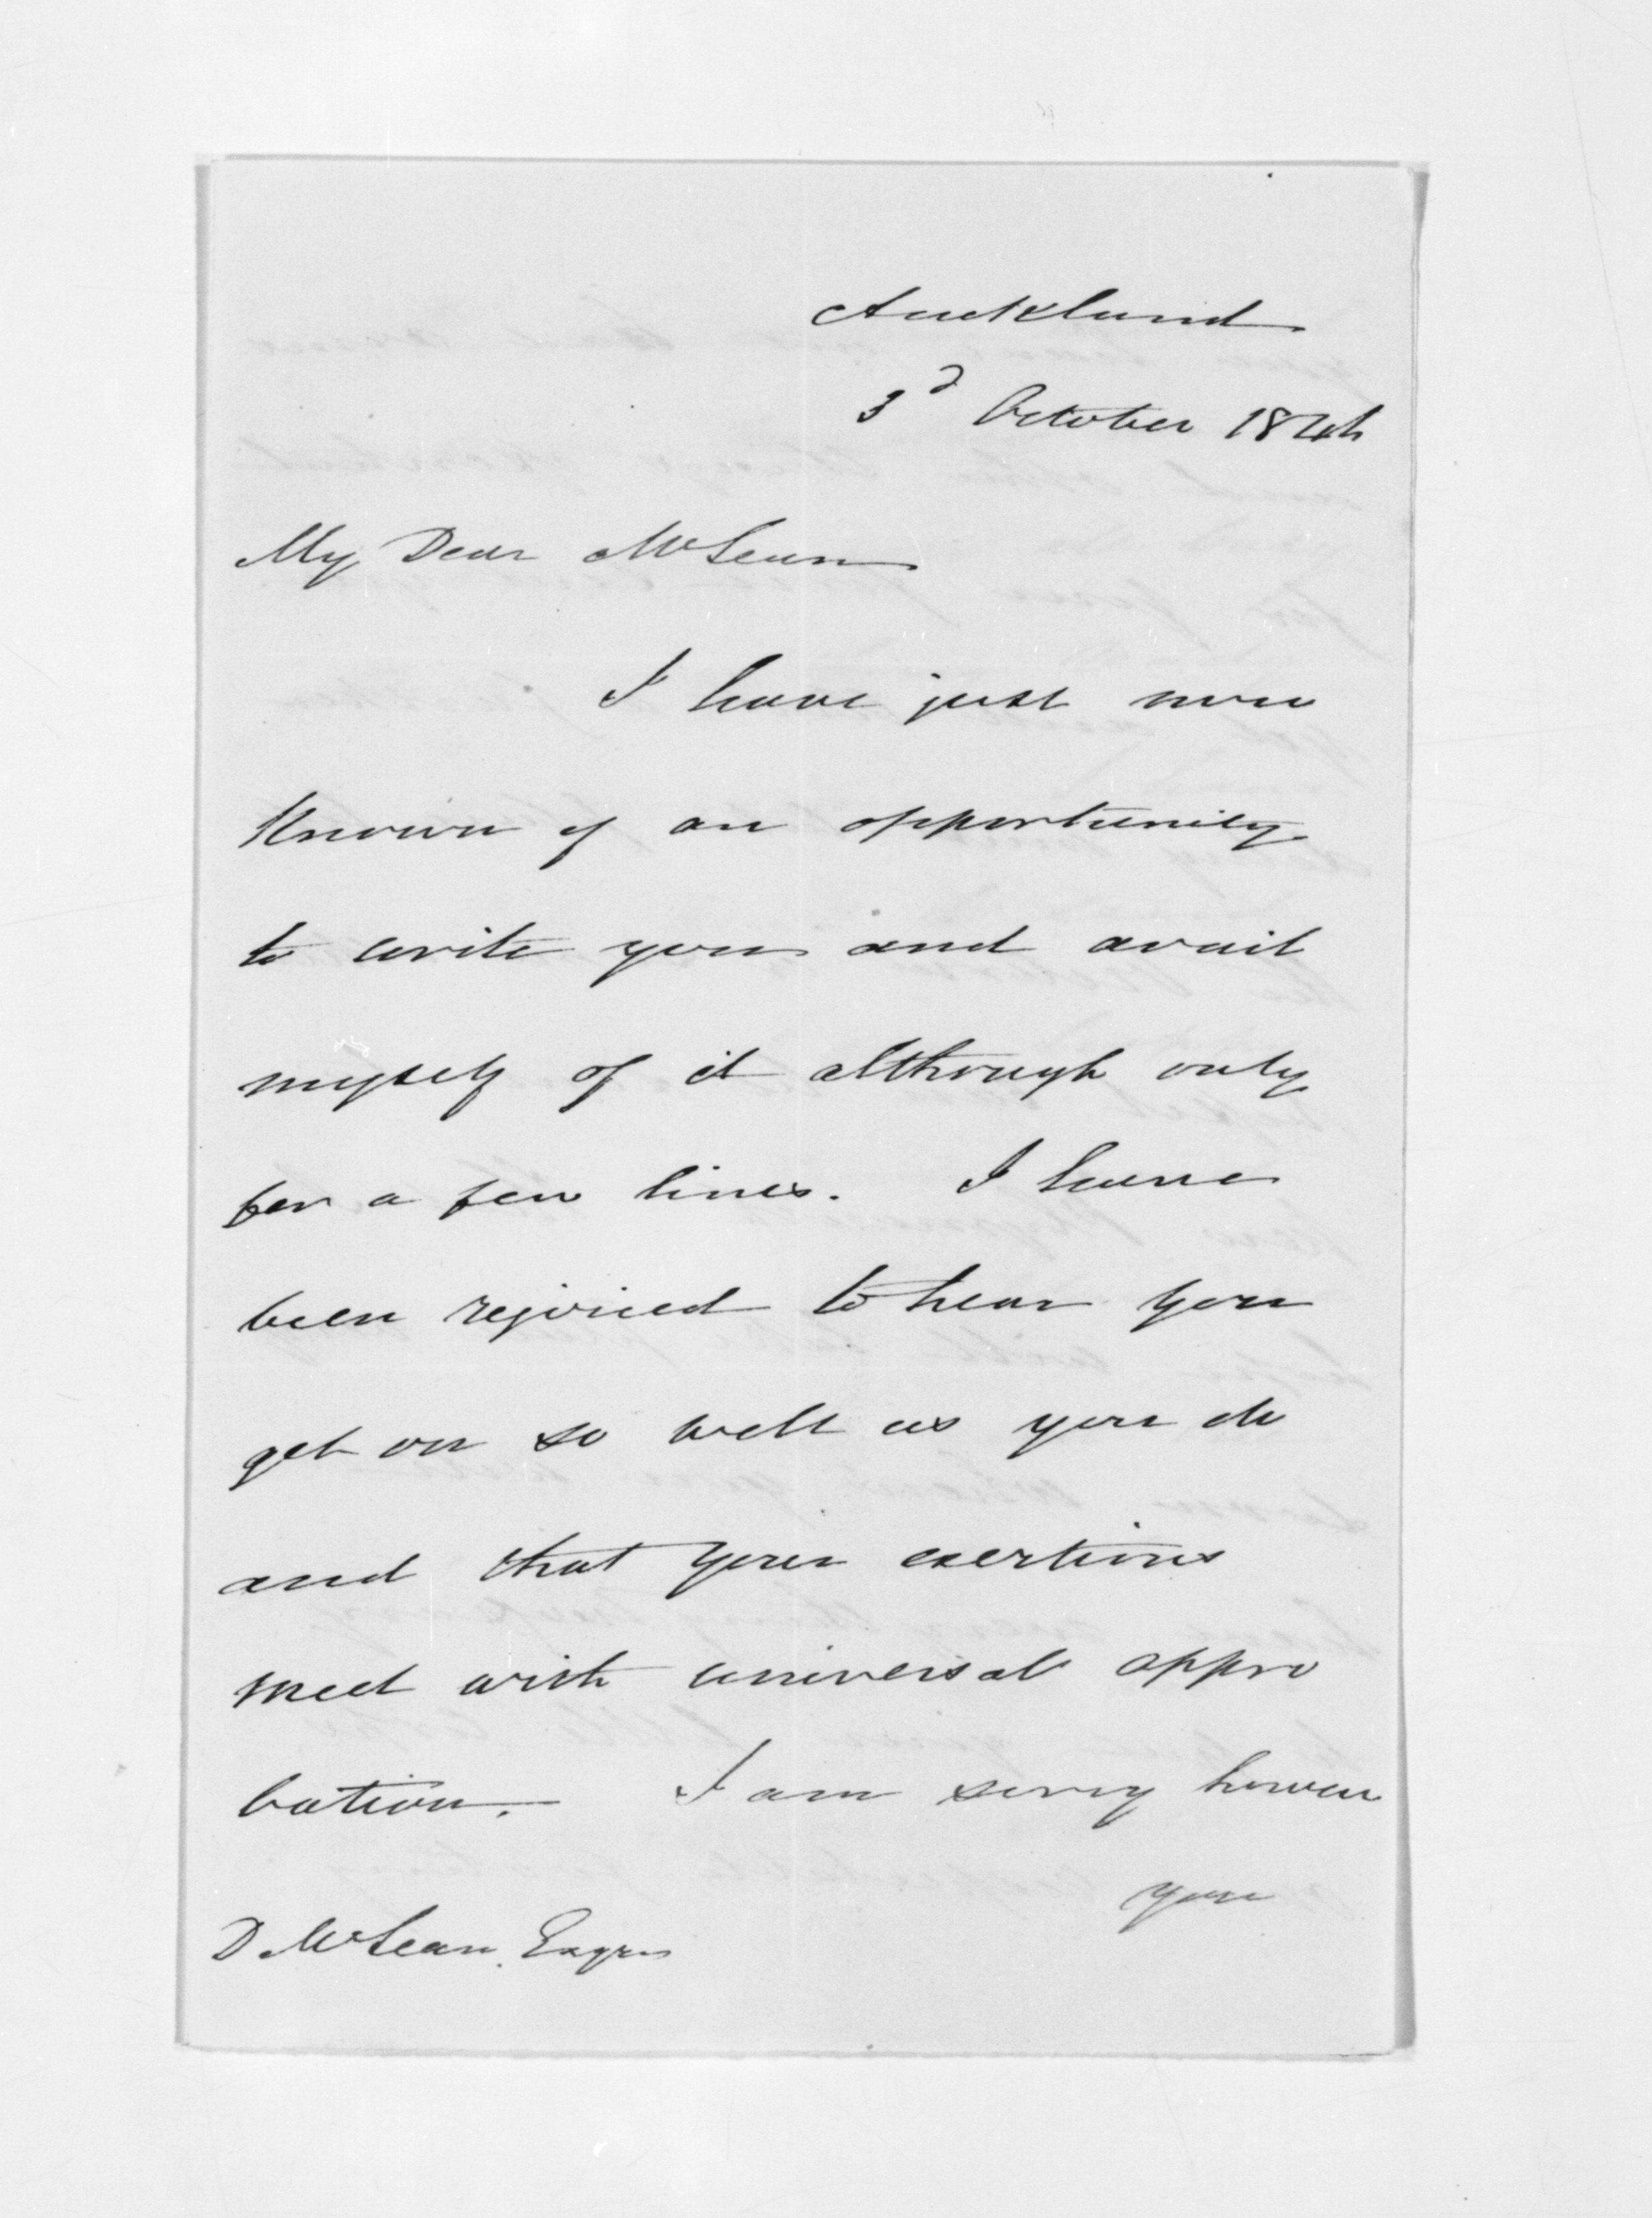 Auckland
3d October 1844
My Dear McLean
I have just now
known of an opportunity
to write you and avail
myself of it although only
for a few lines. I have
been rejoiced to hear you
get on so well as you do
and that your exertions
meet with universal appro
bation. I am sorry however
you
D McLean Esqre